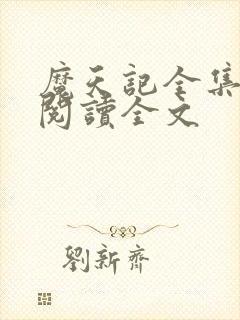 魔天記全集
閱讀全文
劉新齊